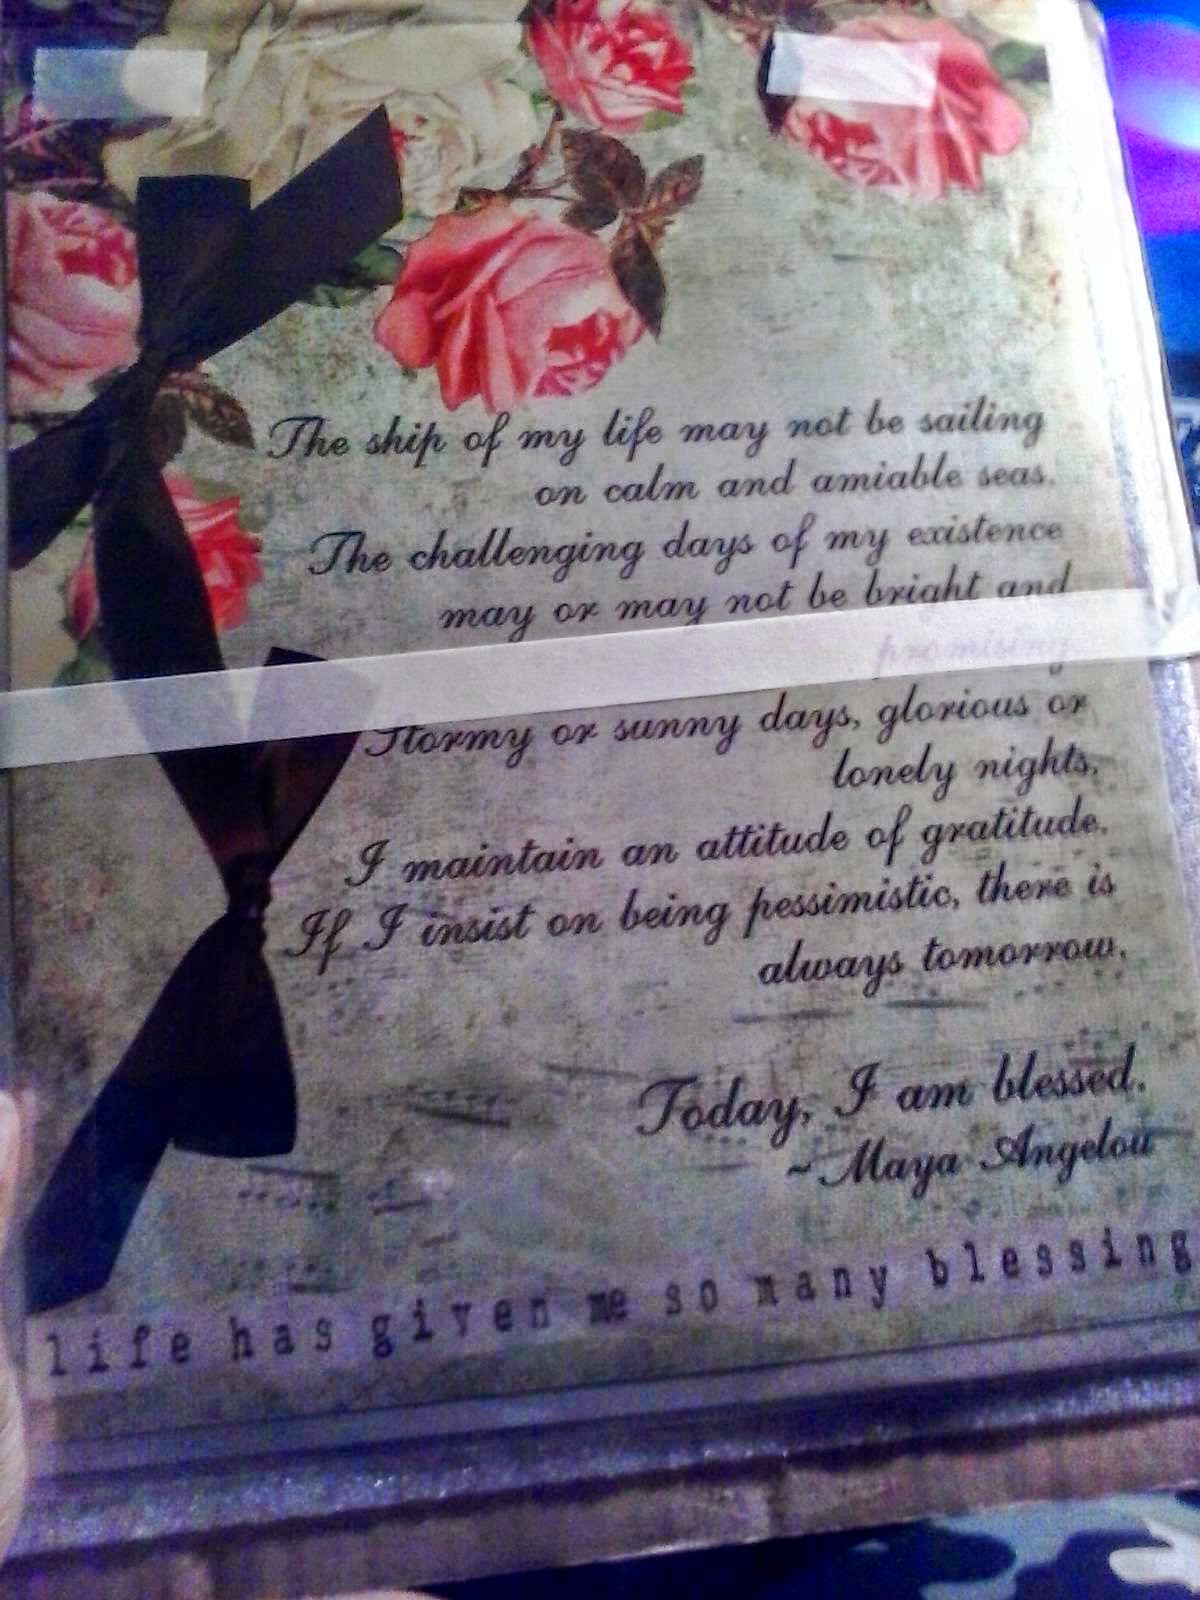 The ship of my life may not be sailing
on calm and amiable seas.
The challenging days of my existence
may or may not be bright and
promising.
Stormy or sunny days, glorious or
lonely nights,
I maintain an attitude of gratitude.
If I insist on being pessimistic, there is
always tomorrow.
Today, I am blessed.
~Maya Angelou
life has given me so many blessing